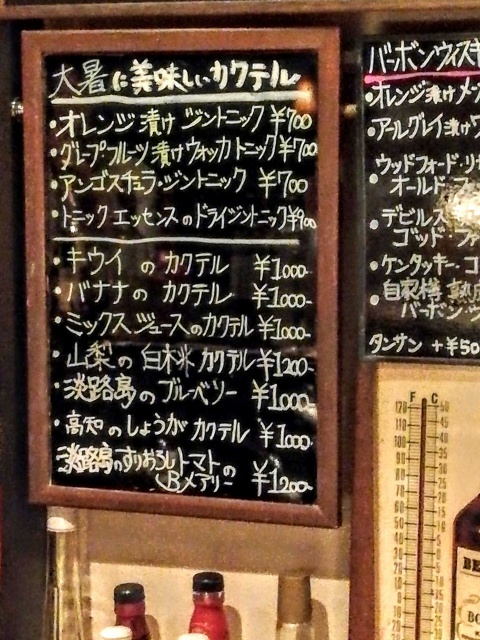 大暑に美味しいカクテル
・オレンジ漬け ジントニック ¥700
・グレープフルーツ漬けウォッカトニック ¥700
・アンゴスチュラ・ジントニック ¥700
・トニックエッセンスのドライジントニック ¥900
・キウイ の カクテル ¥1000-
・バナナ の カクテル ¥1000-
・ミックスジュースのカクテル ¥1000-
・山梨の 白桃 カクテル ¥1200-
・淡路島の ブルーベリー ¥1000-
・高知 のしょうが カクテル ¥1000-
淡路島のすりおろしトマトの
Bメアリー ¥1200-
バーボンウィスキ
・オレンジ漬け メー
・アールグレイ漬け
・ウッドフォード・リ
オールド・ファ
・デビルス
ゴッド・ファ
・ケンタッキー・コ
・自家樽 熟成
バーボン・
タンサン +¥50
F C
120 50
110 45
100 40
90 35
80 30
70 25
60 20
50 15
40 10
30
20
10
BE
BO